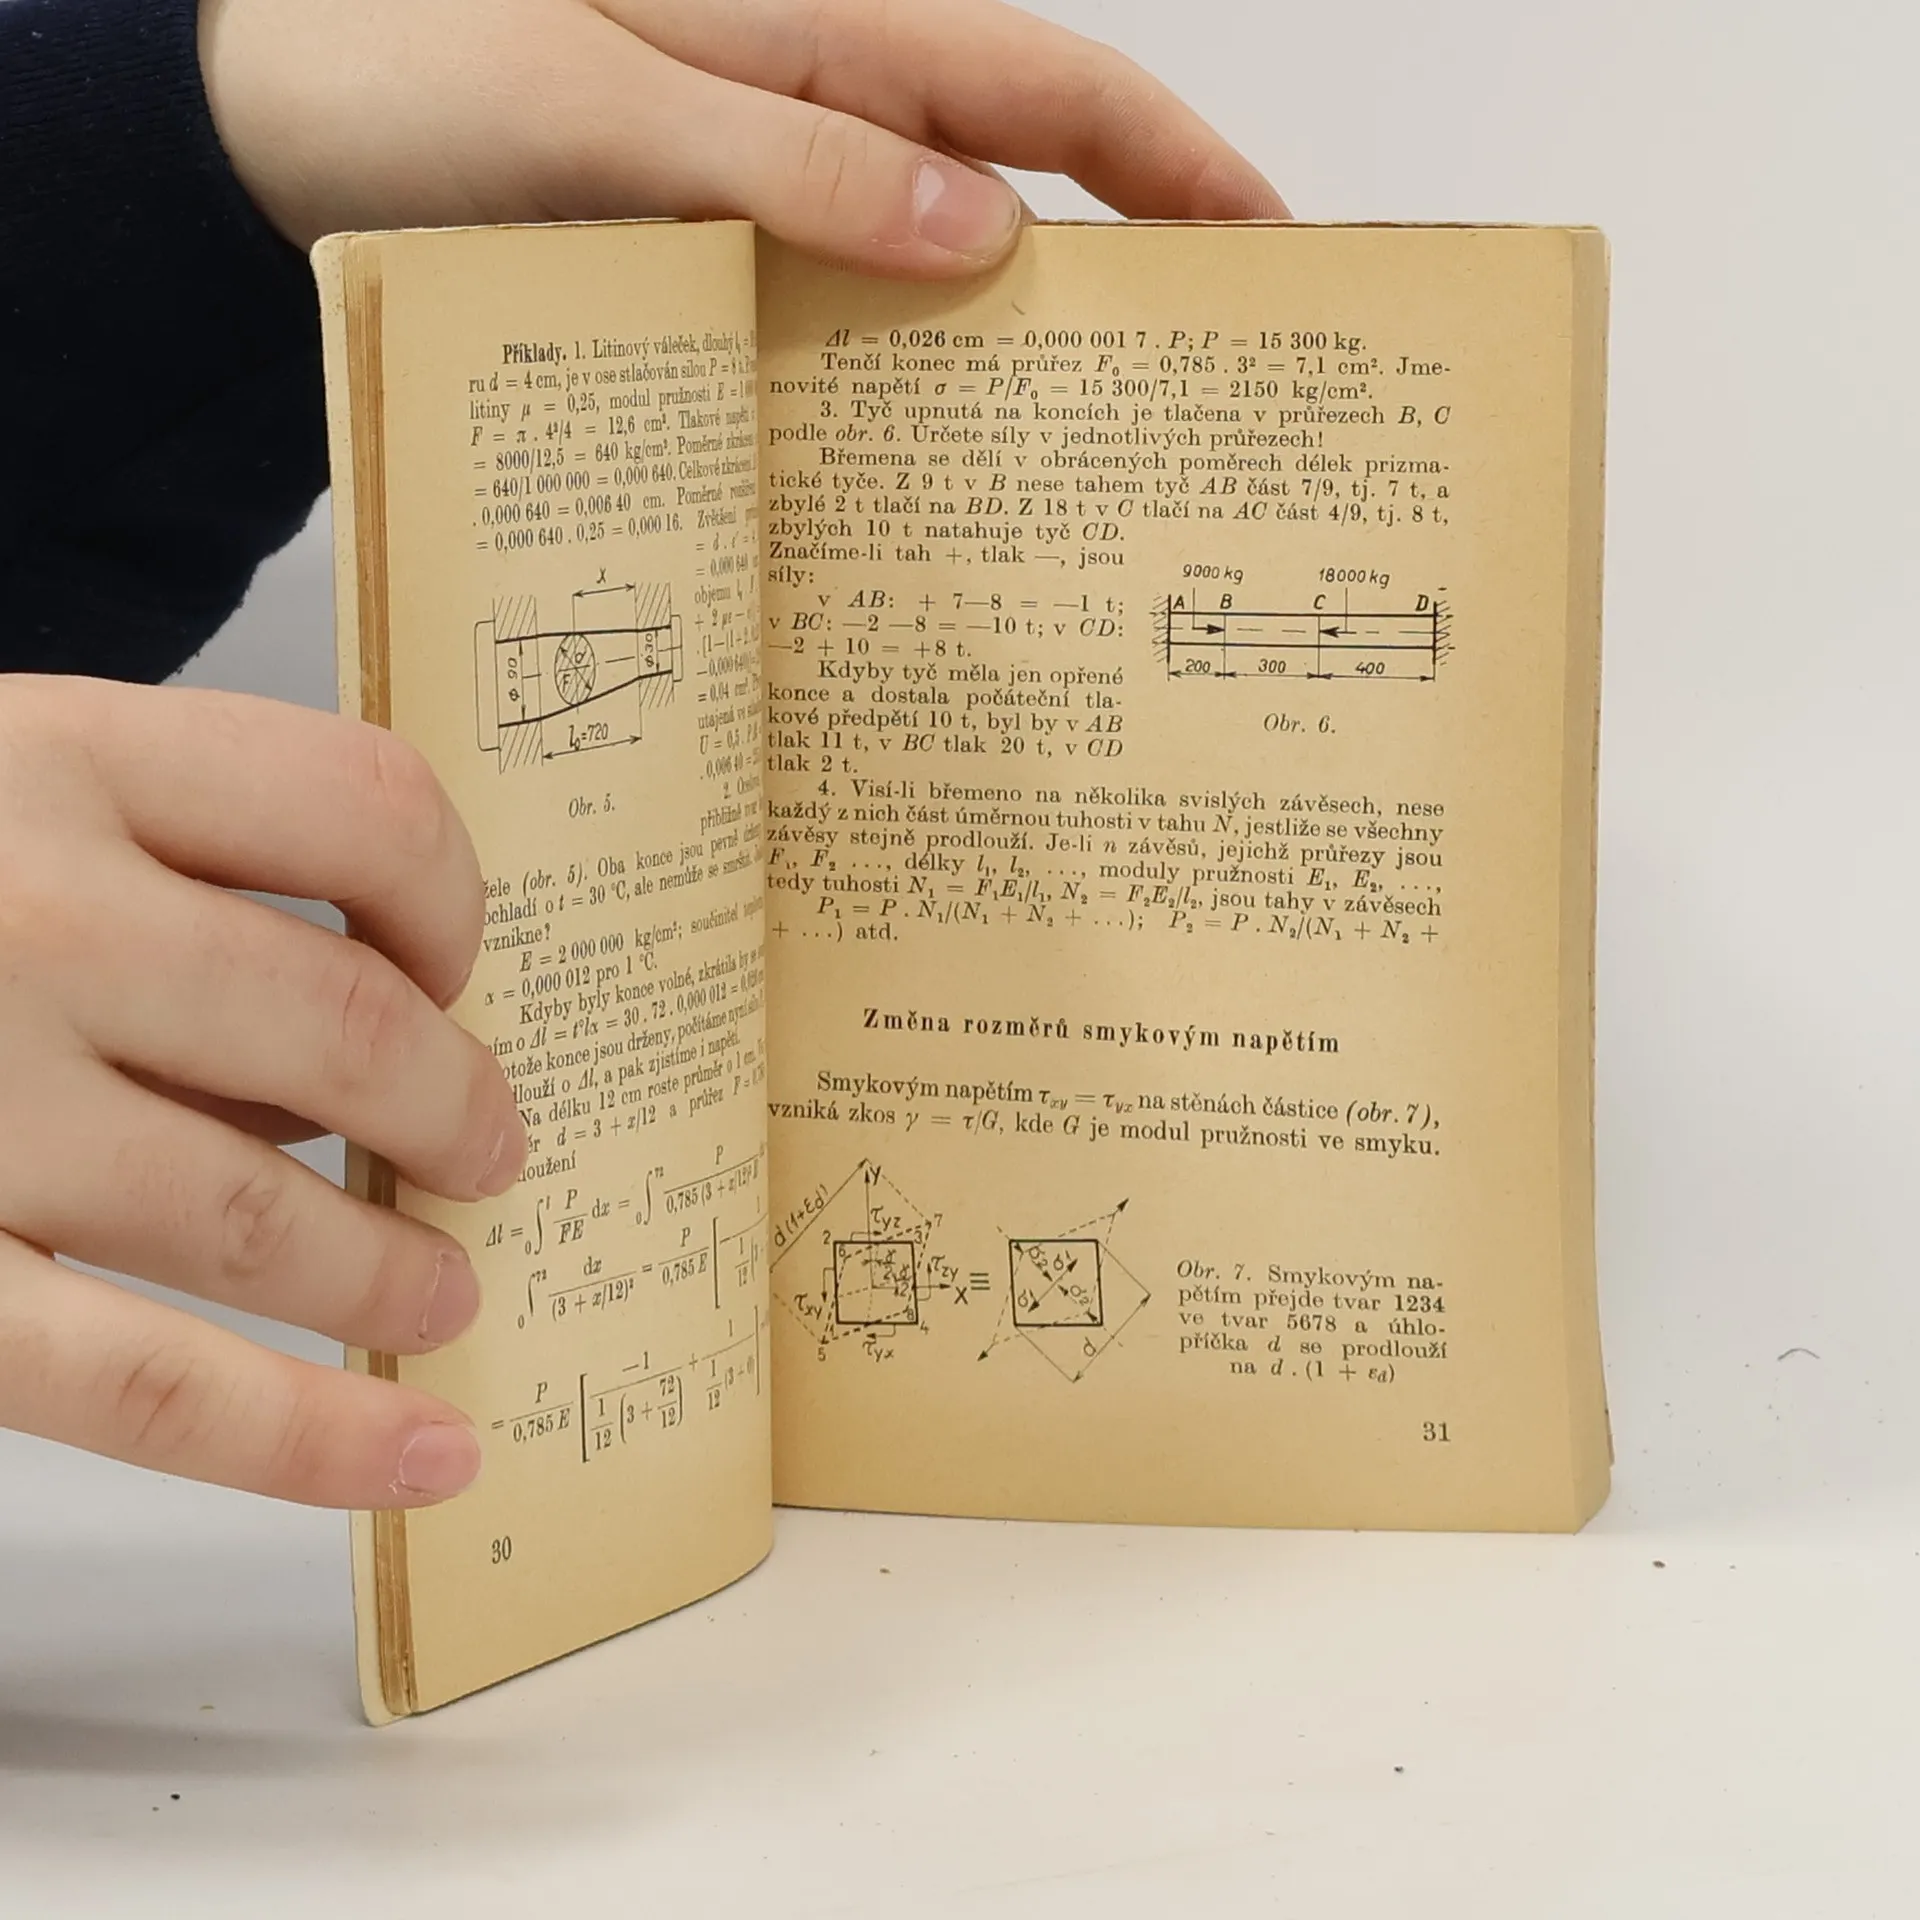 Příklady. 1. Litinový váleček, dlouhý l₁ =
ru d = 4 cm, je v ose stlačován silou P = 8 t.
litiny μ = 0,25, modul pružnosti E = 1
F = π . 4²/4 = 12,6 cm². Tlakové napětí
= 8000/12,5 = 640 kg/cm². Poměrné zkrácení
= 640/1 000 000 = 0,000 640. Celkové zkrácení
. 0,000 640 = 0,006 40 cm. Poměrné rozšíření
= 0,000 640 . 0,25 = 0,000 16. Zvětšení
= 0,000 640
objemu
= 0,04 cm³.
utajená ve
U = 0,5 .
. 0,006 40 =
2.
přibližně tvar
x
ϕ 90
d
F
ϕ 30
l₀=720
Obr. 5.
žele (obr. 5). Oba konce jsou pevně drženy
ochladí o t = 30 °C, ale nemůže se smrštit.
vznikne?
E = 2 000 000 kg/cm²; součinitel
α = 0,000 012 pro 1 °C.
Kdyby byly konce volné, zkrátila by se
ním o Δl = t°lα = 30 . 72 . 0,000 012 = 0,026
otože konce jsou drženy, počítáme nyní
dlouží o Δl, a pak zjistíme i napětí.
Na délku 12 cm roste průměr o 1 cm.
ěr d = 3 + x/12 a průřez F =
loužení
Δl = ₀∫ˡ P/FE dx = ₀∫⁷² P/0,785 (3 + x/12)²
₀∫⁷² dx/(3 + x/12)² = P/0,785 E [
= P/0,785 E [ −1/(1/12 (3 + 72/12)) + 1/(1/12 (3 + 0)) ]
30
Δl = 0,026 cm = 0,000 001 7 . P; P = 15 300 kg.
Tenčí konec má průřez F₀ = 0,785 . 3² = 7,1 cm². Jme-
novité napětí σ = P/F₀ = 15 300/7,1 = 2150 kg/cm².
3. Tyč upnutá na koncích je tlačena v průřezech B, C
podle obr. 6. Určete síly v jednotlivých průřezech!
Břemena se dělí v obrácených poměrech délek prizma-
tické tyče. Z 9 t v B nese tahem tyč AB část 7/9, tj. 7 t, a
zbylé 2 t tlačí na BD. Z 18 t v C tlačí na AC část 4/9, tj. 8 t,
zbylých 10 t natahuje tyč CD.
Značíme-li tah +, tlak —, jsou
síly:
v AB: + 7—8 = —1 t;
v BC: —2 —8 = —10 t; v CD:
—2 + 10 = +8 t.
Kdyby tyč měla jen opřené
konce a dostala počáteční tla-
kové předpětí 10 t, byl by v AB
tlak 11 t, v BC tlak 20 t, v CD
tlak 2 t.
9000 kg 18000 kg
A B C D
200 300 400
Obr. 6.
4. Visí-li břemeno na několika svislých závěsech, nese
každý z nich část úměrnou tuhosti v tahu N, jestliže se všechny
závěsy stejně prodlouží. Je-li n závěsů, jejichž průřezy jsou
F₁, F₂ ..., délky l₁, l₂, ..., moduly pružnosti E₁, E₂, ...,
tedy tuhosti N₁ = F₁E₁/l₁, N₂ = F₂E₂/l₂, jsou tahy v závěsech
P₁ = P . N₁/(N₁ + N₂ + ...); P₂ = P . N₂/(N₁ + N₂ +
+ ...) atd.
Změna rozměrů smykovým napětím
Smykovým napětím τxy = τyx na stěnách částice (obr. 7),
vzniká zkos γ = τ/G, kde G je modul pružnosti ve smyku.
d(1+εd)
y
τyz
7
2
3
6
τzy
x
≡
τxy
8
4
5
τyx
d
Obr. 7. Smykovým na-
pětím přejde tvar 1234
ve tvar 5678 a úhlo-
příčka d se prodlouží
na d . (1 + εd)
31